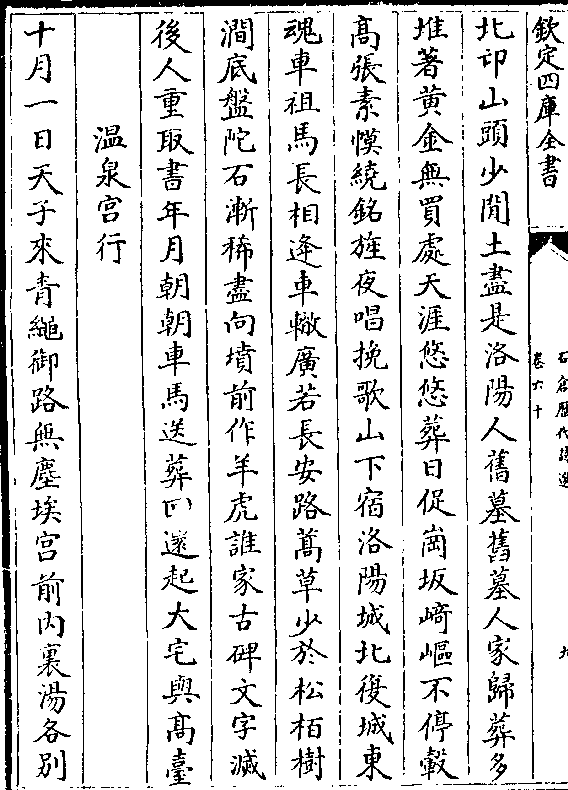 欽定四庫全書
石倉歷代詩選
卷六十
九
北邙山頭少閒土盡是洛陽人舊墓舊墓人家歸葬多
堆著黃金無買處天涯悠悠葬日促岡坂崎嶇不停轂
高張素幙繞銘旌夜唱挽歌山下宿洛陽城北復城東
魂車祖馬長相逢車轍廣若長安路蒿草少於松柏樹
澗底盤陀石漸稀盡向墳前作羊虎誰家古碑文字滅
後人重取書年月朝朝車馬送葬回還起大宅與高臺
溫泉宮行
十月一日天子來青繩御路無塵埃宮前內裏湯各別